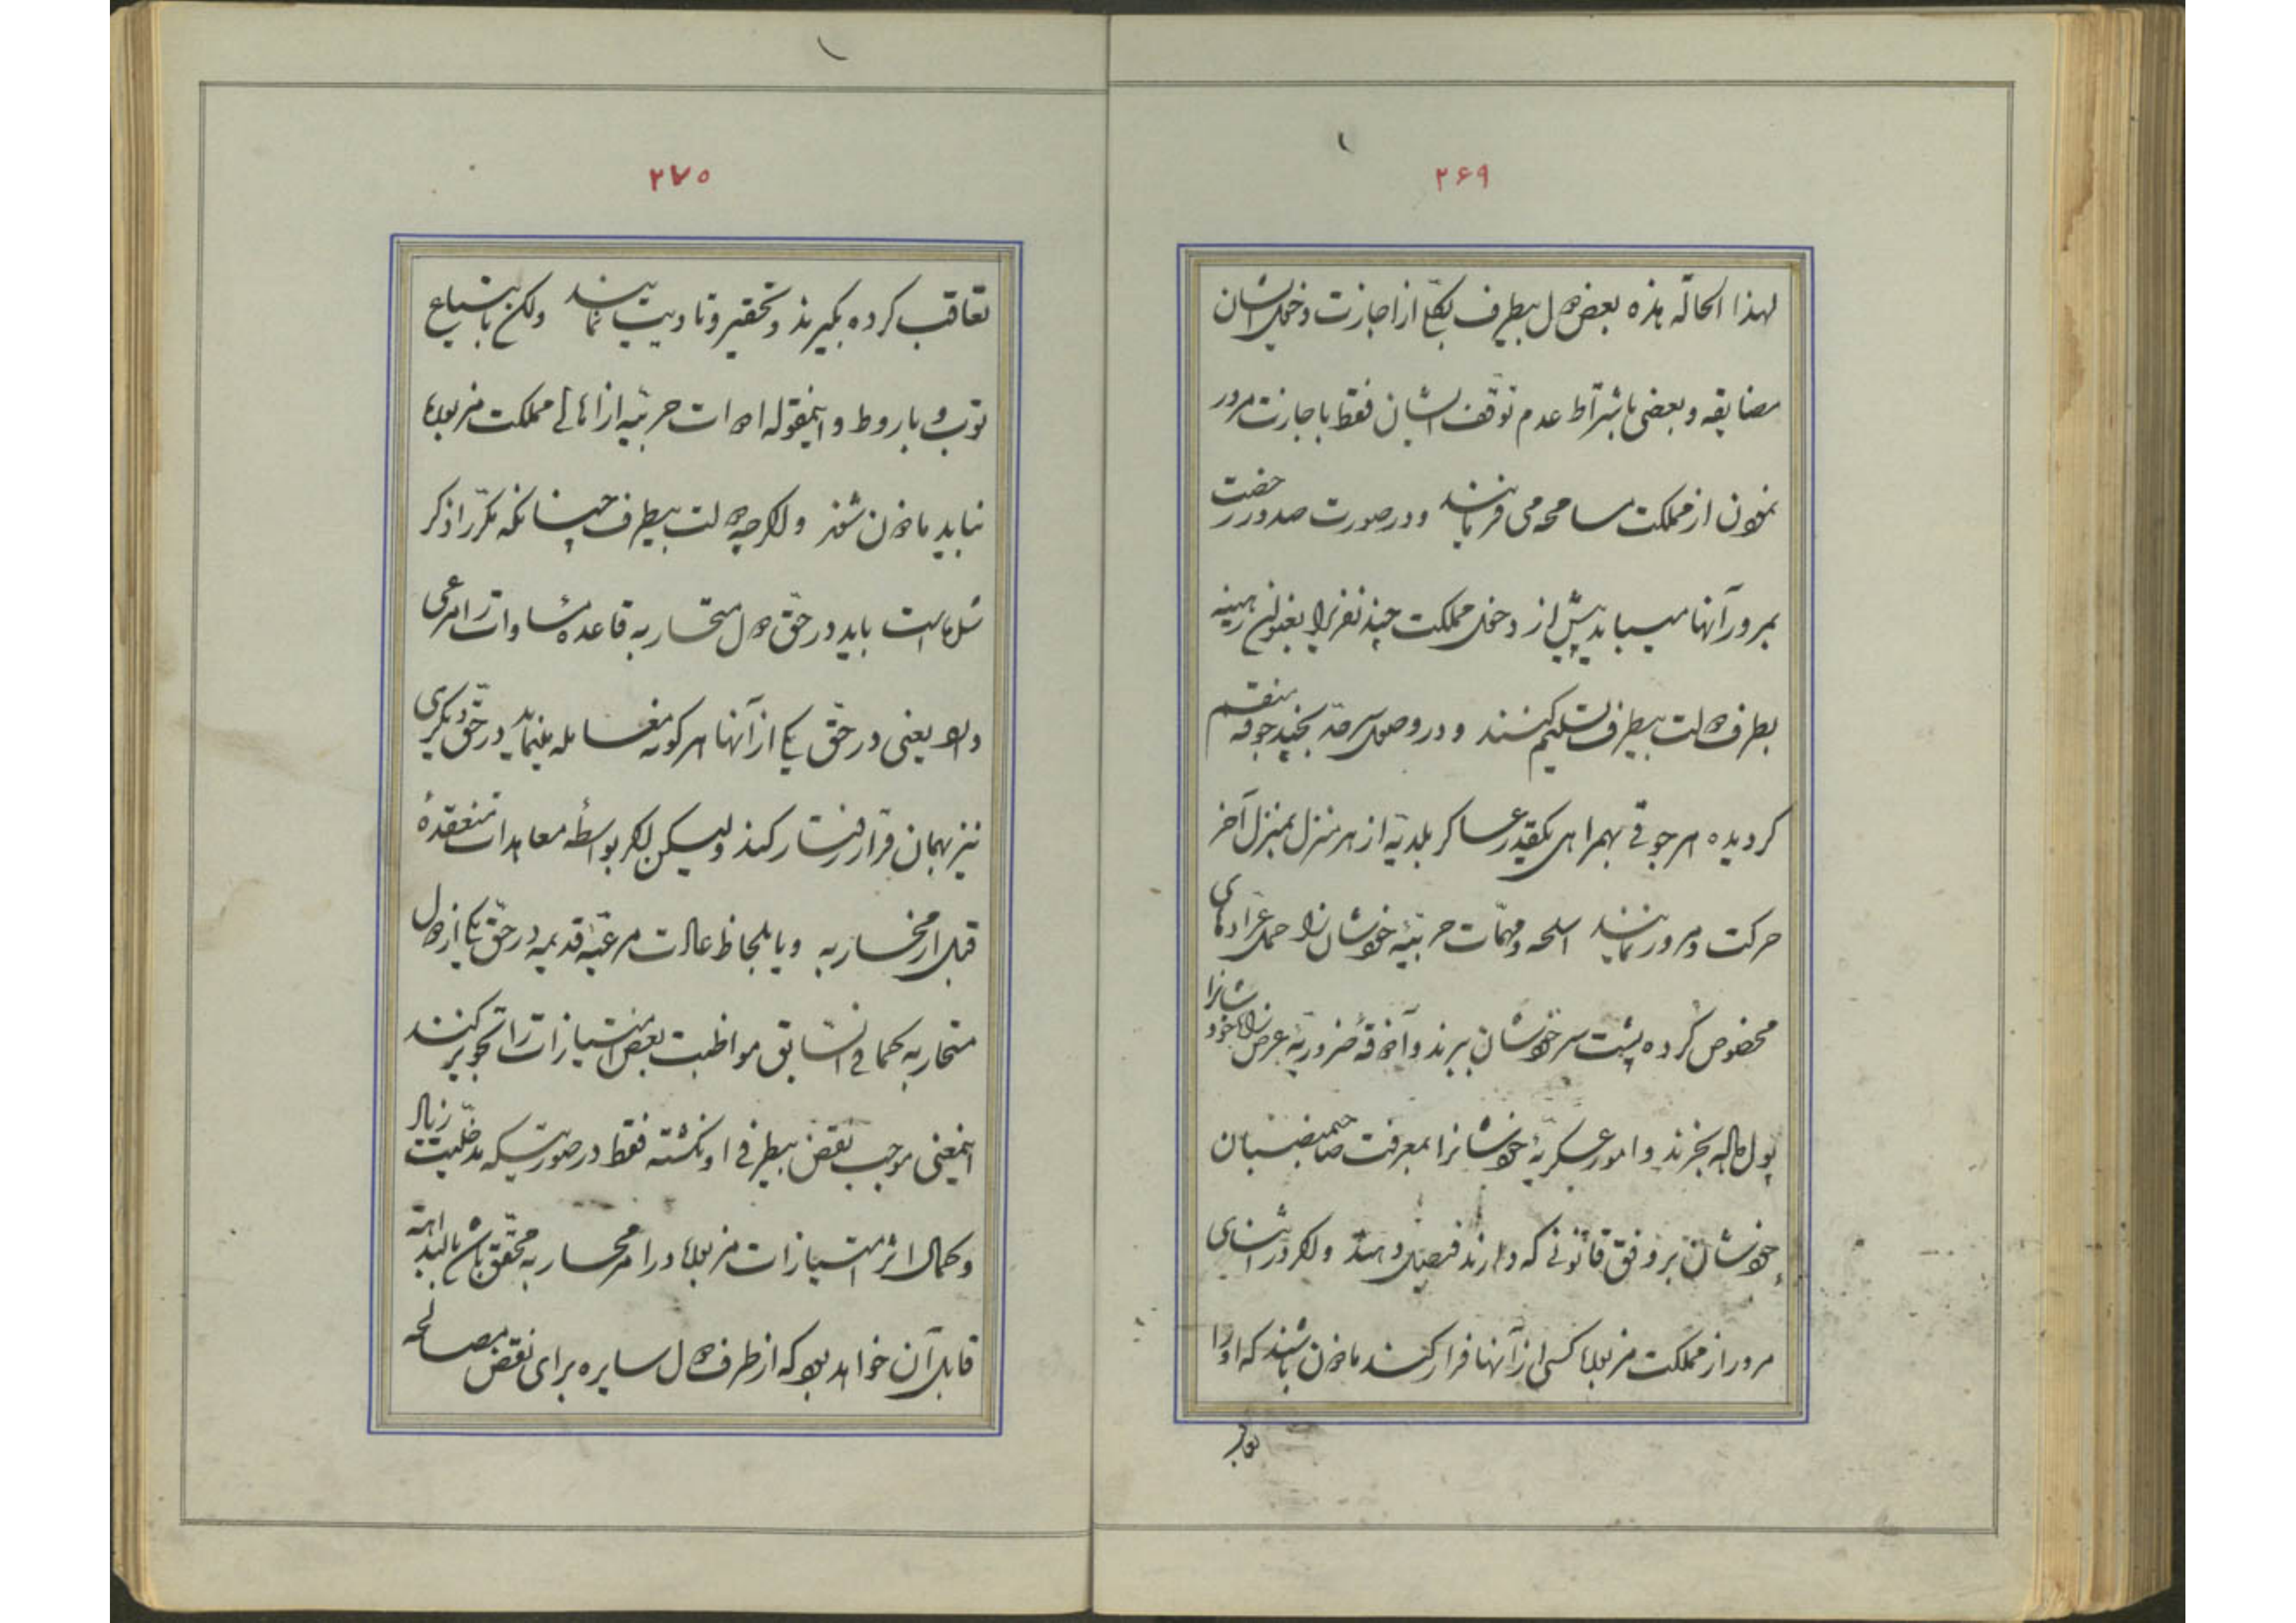 ۲۶۹
لهذا الحالة هذه بعض دول بیطرف بکلی از اجازت دخول ایشان
مضایقه و بعضی باشتراط عدم توقف ایشان فقط باجازت مرور
نمودن از مملکت مسامحه می فرمایند و در صورت صدور رخصت
بمرور آنها میباید پیش از دخول مملکت چند نفر را بعنوان رهینه
بطرف دولت بیطرف تسلیم کنند و در وصول سرحد بچند جوقه منقسم
گردیده هر جوقی بهمراهی یکقدر عساکر بلدیه از هر منزل بمنزل آخر
حرکت و مرور نمایند اسلحه و مهمات حربیهٔ خودشان را حمل عرّاده‌های
مخصوص کرده پشت سر خودشان ببرند و آذوقهٔ ضروریهٔ عرض راه خودشانرا
پول داده بخرند و امور عسکریهٔ خودشانرا بمعرفت صاحبمنصبان
خودشان بر وفق قانونی که دارند فیصل دهند و اگر در اثنای
مرور از مملکت مزبوره کسی از آنها فرار کند مأذون باشند که او را
تعاقب
۲۷۰
تعاقب کرده بگیرند و تحقیر و تأدیب نمایند ولکن باشیاع
توپ و باروط و اینمقوله ادوات حربیه از اهالی مملکت مزبوره
نباید مأذون شوند و اگرچه دولت بیطرف چنانکه مکرّراً ذکر
شده است باید در حق دول متحاربه قاعدهٔ مساوات را مرعی
دارد یعنی در حق یکی از آنها هر گونه معامله مینماید در حق دیگری
نیز بهمان قرار رفتار کند ولیکن اگر بواسطه معاهدات منعقدهٔ
قبل از محاربه و یا بلحاظ عادات مرعیهٔ قدیمه در حق یکی از دول
متحاربه کما فی السابق مواظبت بعض امتیازات را تجویز کنند
اینمعنی موجب نقض بیطرفی او نگشته فقط در صورتیکه مدخلیت زیاد
و کمال اثر امتیازات مزبوره در امر محاربه محقق باشد بالبداهه
قابل آن خواهد بود که از طرف دول سایره برای نقض مصالحه